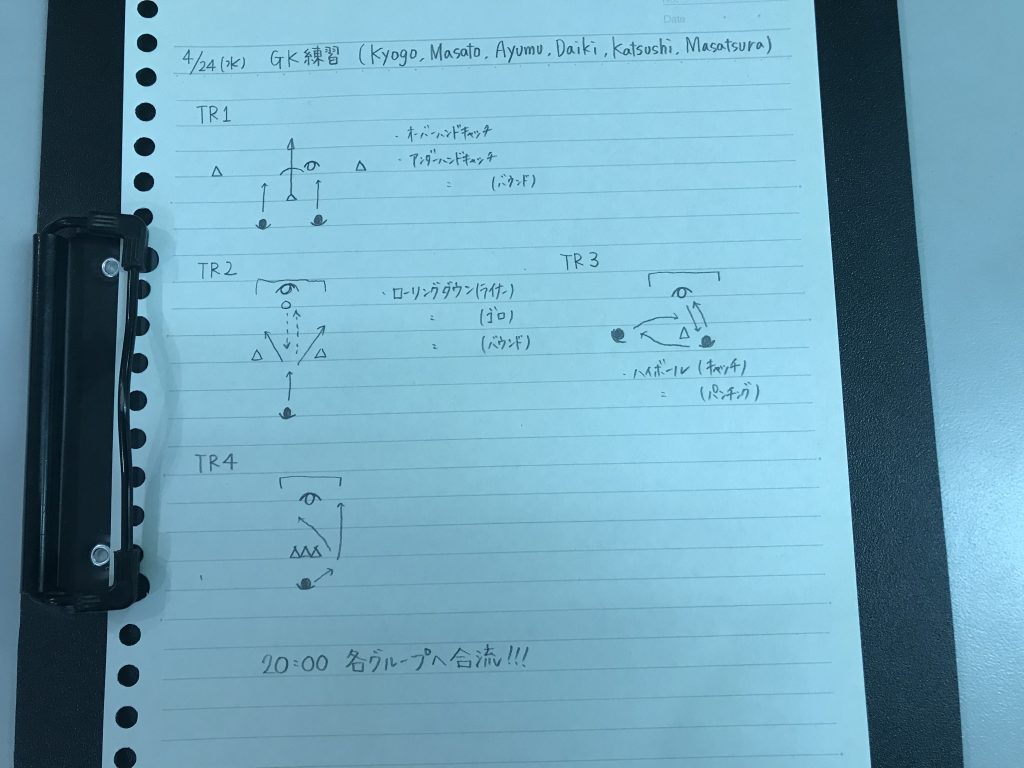 No.
Date ・ ・
4/24(水) GK練習 (Kyogo, Masato, Ayumu, Daiki, Katsushi, Masatsura)
TR1
・オーバーハンドキャッチ
・アンダーハンドキャッチ
〃 (バウンド)
TR2
・ローリングダウン(ライナー)
〃 (ゴロ)
〃 (バウンド)
TR3
・ハイボール (キャッチ)
〃 (パンチング)
TR4
20:00 各グループへ合流!!!